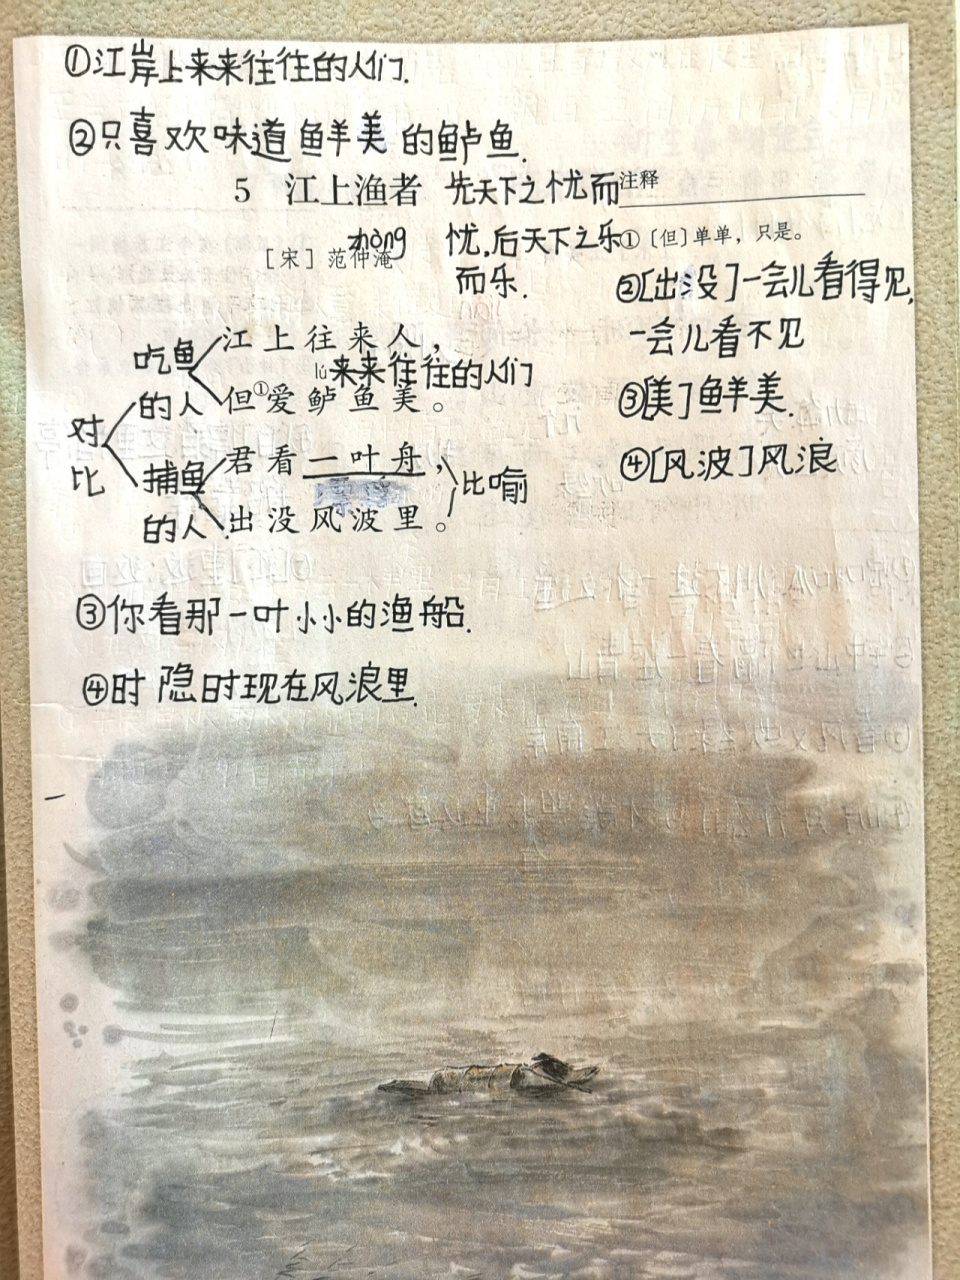 ①江岸上来来往往的人们.
②只喜欢味道鲜美的鲈鱼.
5 江上渔者
先天下之忧而
忧,后天下之乐
而乐.
zhòng
［宋］范仲淹
注释
①〔但〕单单，只是。
②[出没]一会儿看得见,
一会儿看不见
③[美]鲜美.
④[风波]风浪
对比
吃鱼的人
江上往来人，
来来往往的人们
lú
但①爱鲈鱼美。
捕鱼的人
君看一叶舟，
出没风波里。
比喻
③你看那一叶小小的渔船.
④时隐时现在风浪里.